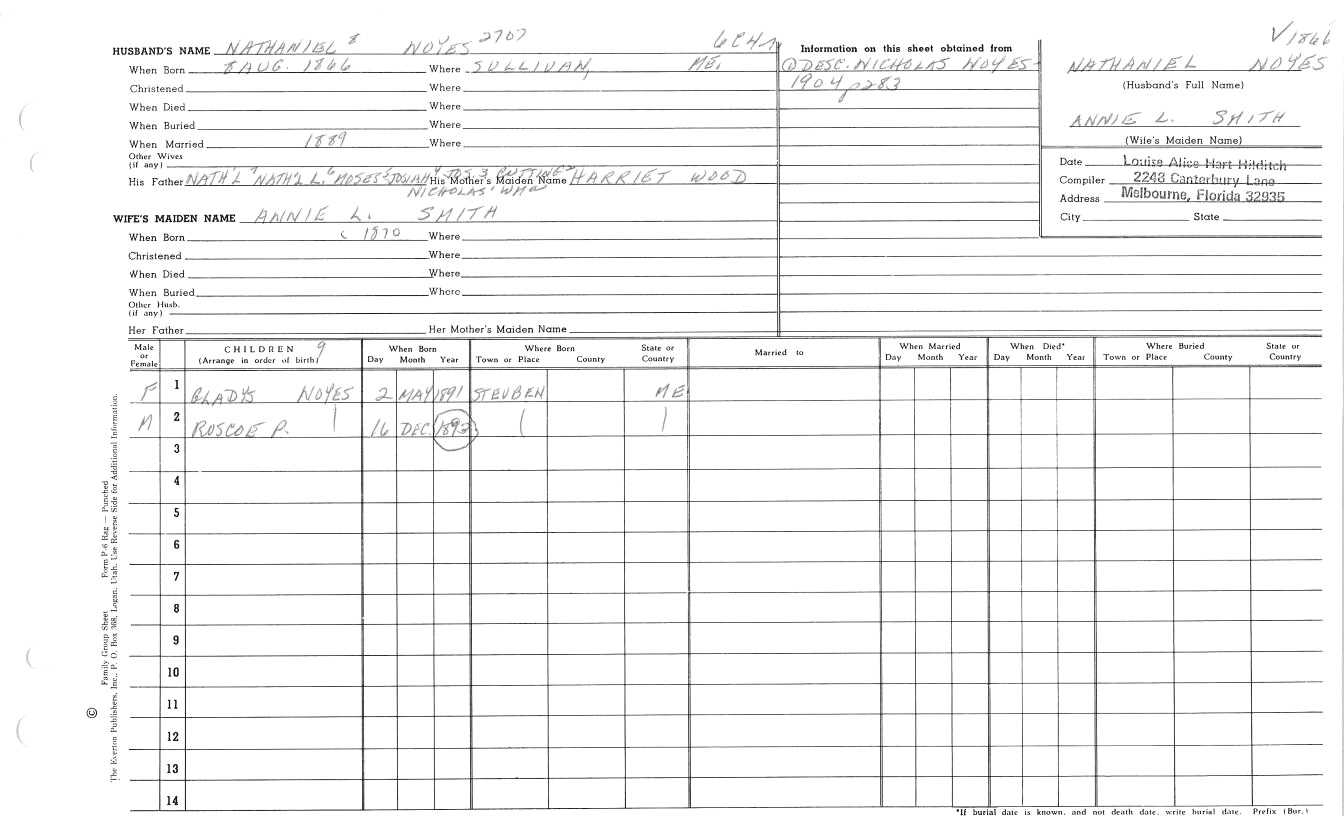 V1866
HUSBAND'S NAME NATHANIEL 8 NOYES 2707 6CH
When Born 8 AUG. 1866 Where SULLIVAN, ME.
Christened Where
When Died Where
When Buried Where
When Married 1889 Where
Other Wives
(if any)
His Father NATH'L 7 NATH'L L. 6 MOSES 5 JOSIAH 4 JOS 3 CUTTING 2 His Mother's Maiden Name HARRIET WOOD
NICHOLAS' WM
WIFE'S MAIDEN NAME ANNIE L. SMITH
When Born c 1870 Where
Christened Where
When Died Where
When Buried Where
Other Husb.
(if any)
Her Father Her Mother's Maiden Name
Information on this sheet obtained from
① DESC. NICHOLAS NOYES-
1904 p283
NATHANIEL NOYES
(Husband's Full Name)
ANNIE L. SMITH
(Wife's Maiden Name)
Date Louise Alice Hart Hilditch
Compiler 2243 Canterbury Lane
Address Melbourne, Florida 32935
City State
Male or Female CHILDREN 9 (Arrange in order of birth) When Born Day Month Year Where Born Town or Place County State or Country Married to When Married Day Month Year When Died* Day Month Year Where Buried Town or Place County State or Country
F 1 GLADYS NOYES 2 MAY 1891 STEUBEN ME
M 2 ROSCOE P. | 16 DEC. 1892 ( |
3
4
5
6
7
8
9
10
11
12
13
14
*If burial date is known, and not death date, write burial date. Prefix (Bur.)
Family Group Sheet Form P-6 Rag — Punched
© The Everton Publishers, Inc., P. O. Box 368, Logan, Utah. Use Reverse Side for Additional Information.